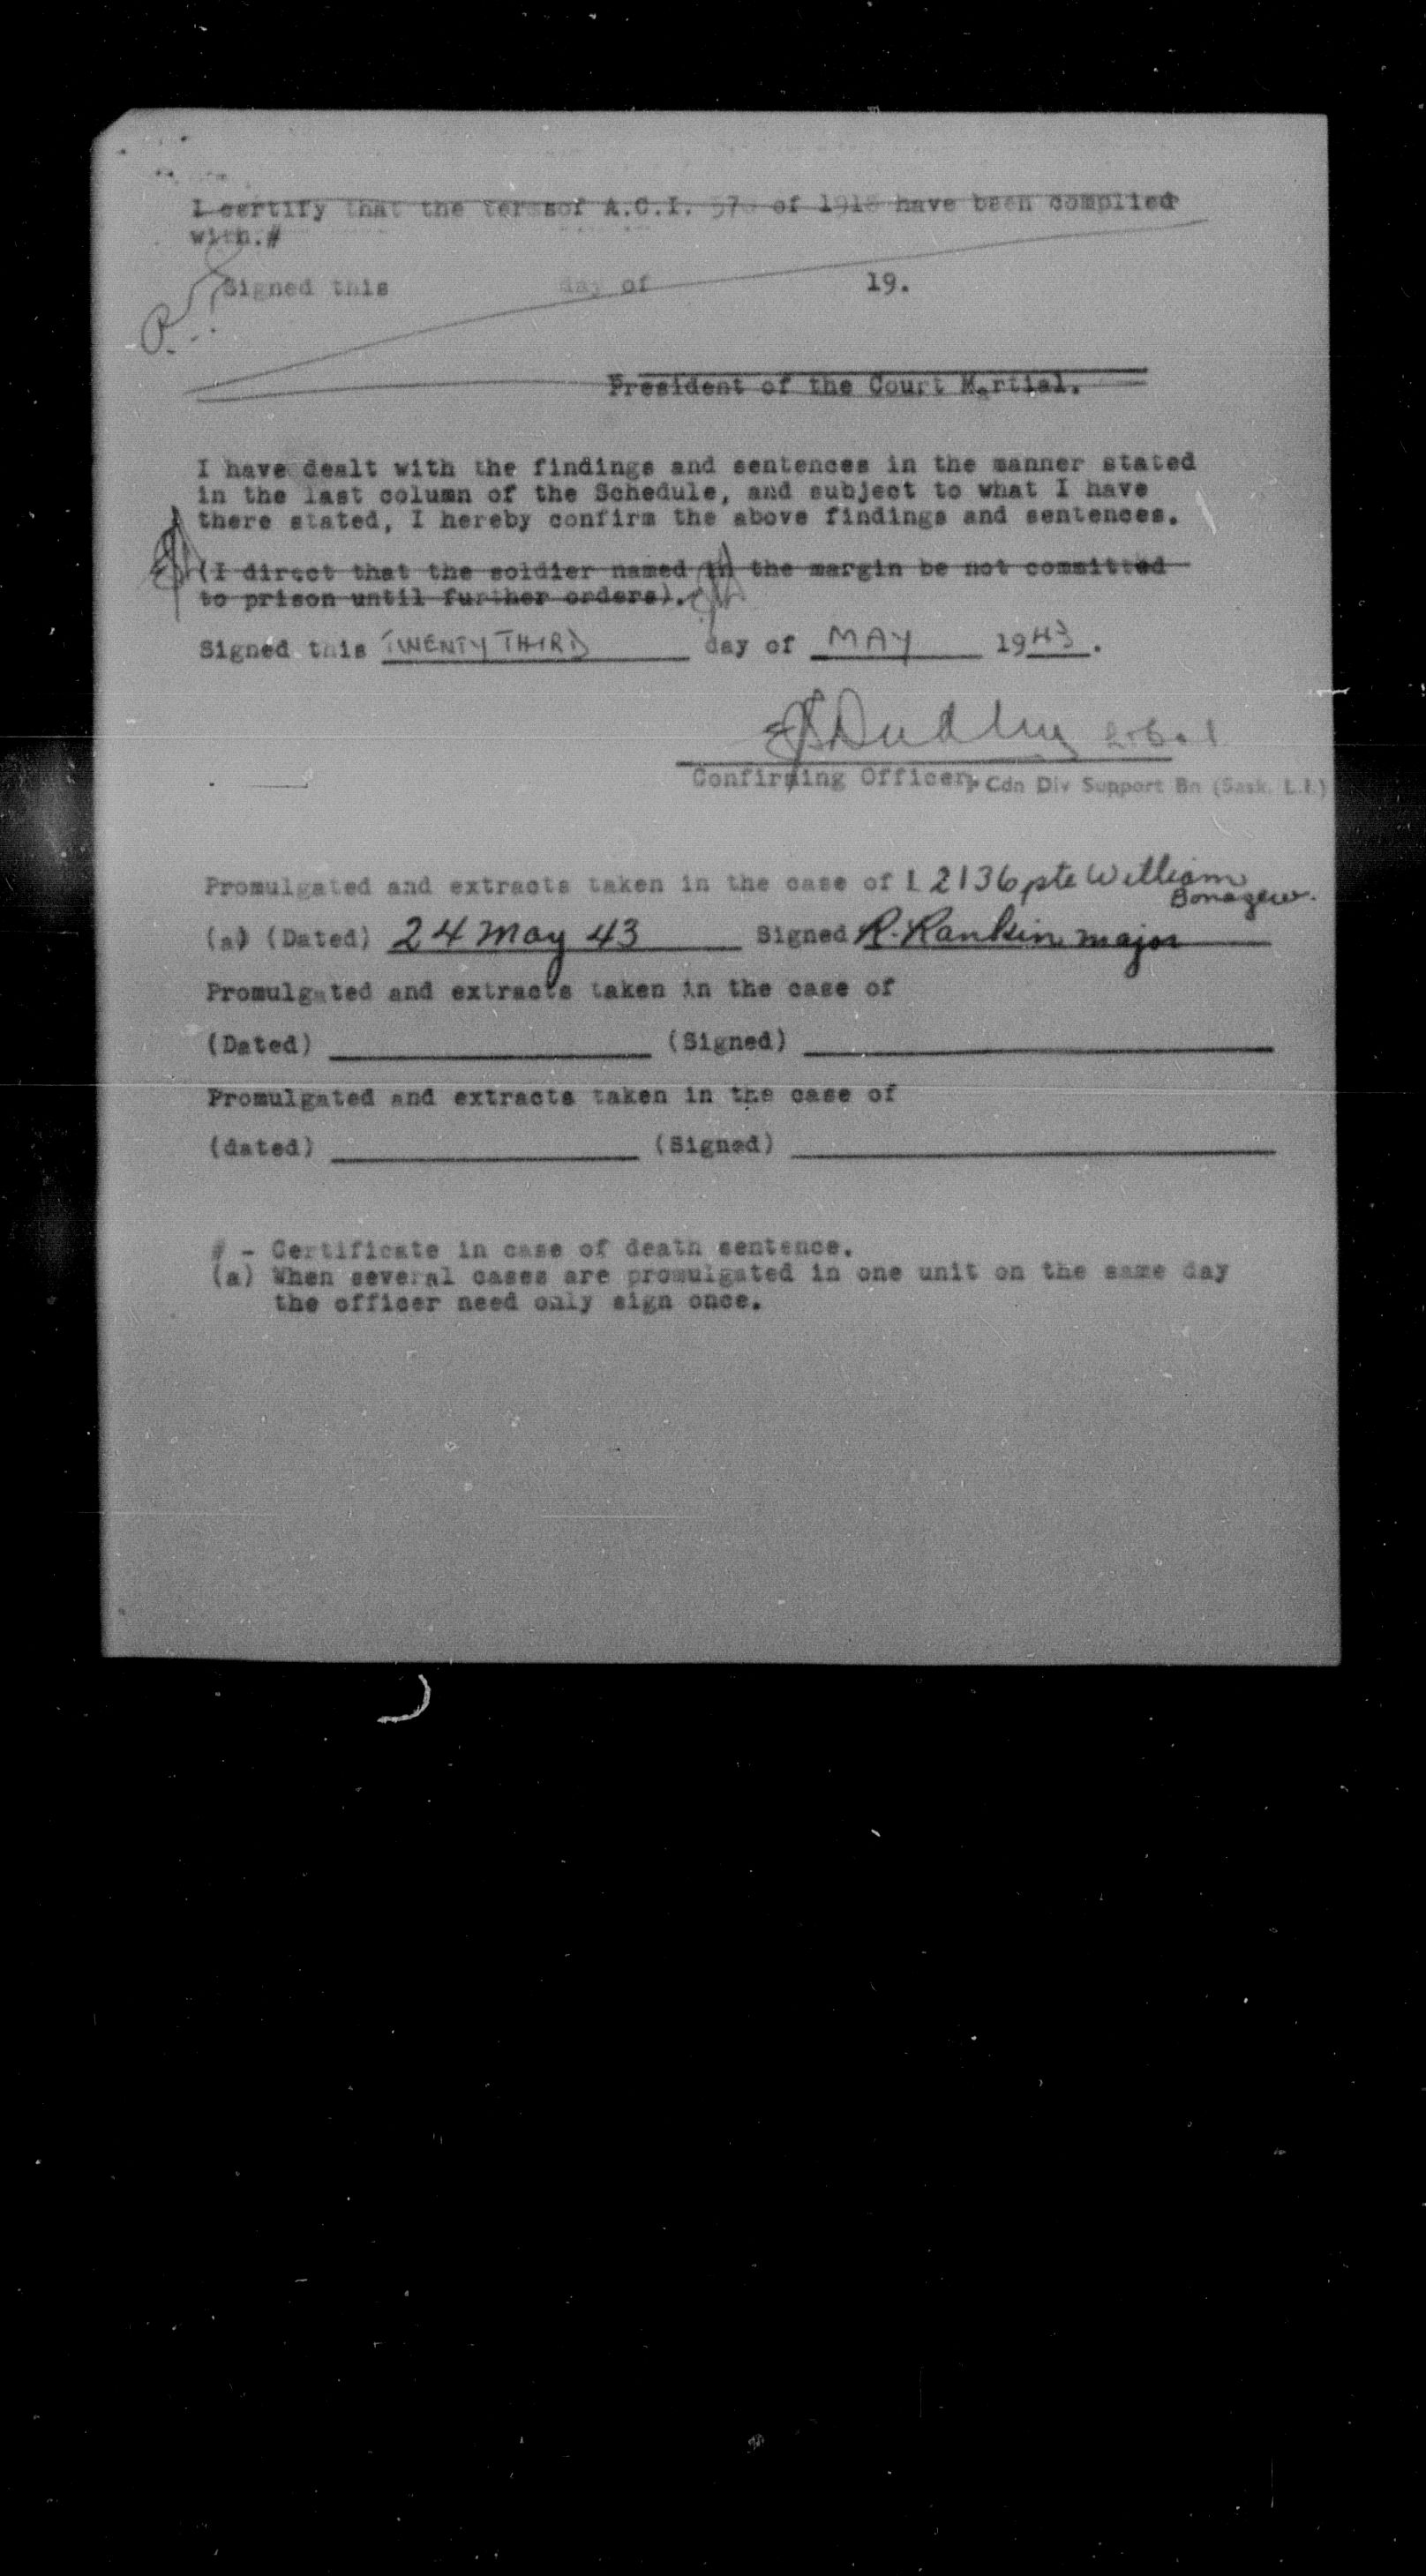 I certify that the termsof A.C.I. 570 of 1918 have been complied
with.#
Signed this day of 19.
President of the Court Martial.
I have dealt with the findings and sentences in the manner stated
in the last column of the Schedule, and subject to what I have
there stated, I hereby confirm the above findings and sentences.
(I direct that the soldier named in the margin be not committed
to prison until further orders).
Signed this TWENTY THIRD day of MAY 1943.
Dudley
Confirming Officer, Cdn Div Support Bn (Sask. L.I.)
Promulgated and extracts taken in the case of L 2136 pte William
(a) (Dated) 24 May 43 Signed R. Rankin major
Promulgated and extracts taken in the case of
(Dated) (Signed)
Promulgated and extracts taken in the case of
(dated) (Signed)
# - Certificate in case of death sentence.
(a) When several cases are promulgated in one unit on the same day
the officer need only sign once.